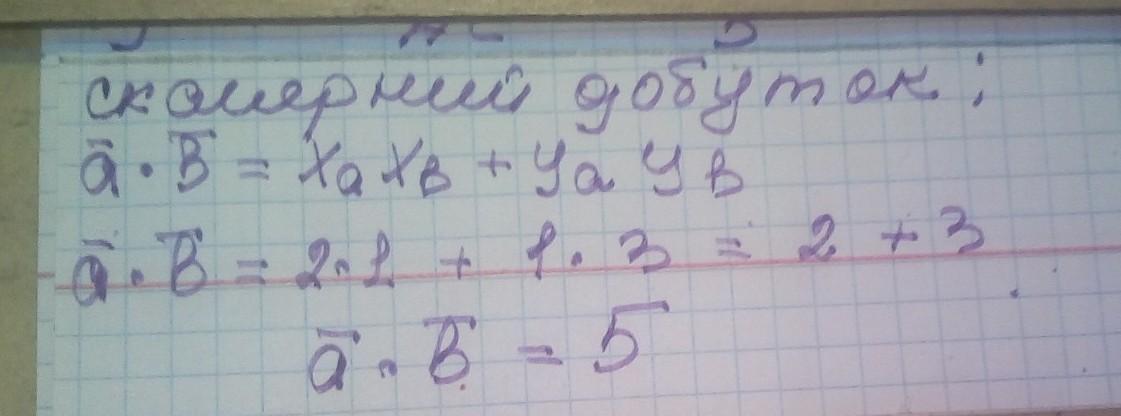 скалярний добуток:
ā · B̄ = xa xB + ya yB
ā · B̄ = 2·1 + 1·3 = 2 + 3
ā · B̄ = 5